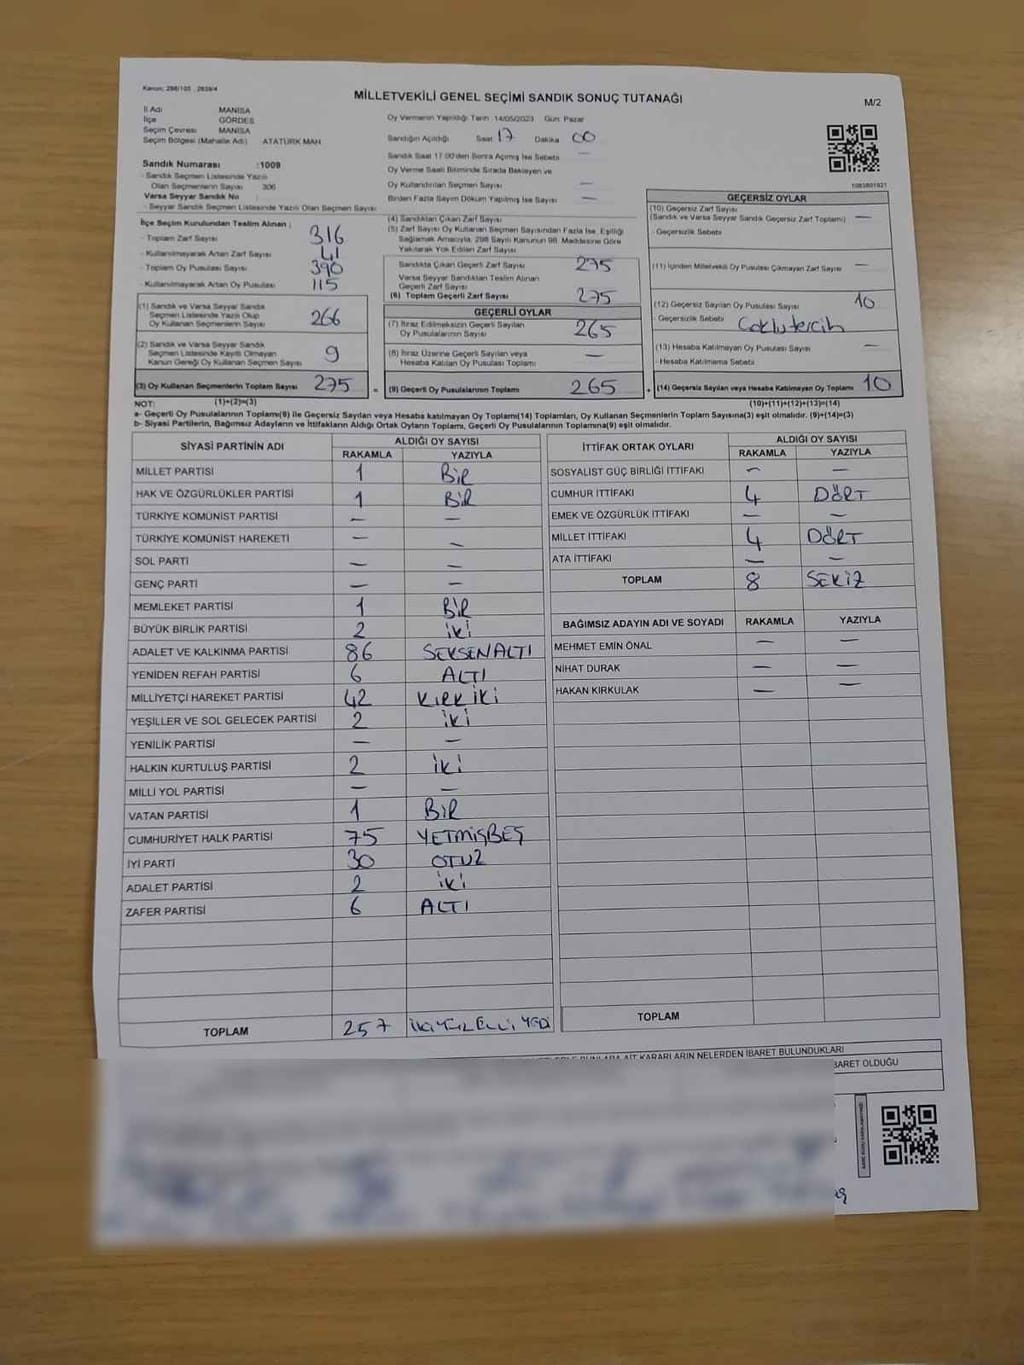 Kanun: 298/105 , 2839/4
MİLLETVEKİLİ GENEL SEÇİMİ SANDIK SONUÇ TUTANAĞI
M/2
İl Adı MANİSA
İlçe GÖRDES
Seçim Çevresi MANİSA
Seçim Bölgesi (Mahalle Adı) ATATÜRK MAH
Sandık Numarası :1009
- Sandık Seçmen Listesinde Yazılı
Olan Seçmenlerin Sayısı 306
Varsa Seyyar Sandık No
- Seyyar Sandık Seçmen Listesinde Yazılı Olan Seçmen Sayısı
Oy Vermenin Yapıldığı Tarih 14/05/2023 Gün: Pazar
Sandığın Açıldığı Saat 17 Dakika 00
Sandık Saat 17:00'den Sonra Açılmış İse Sebebi —
Oy Verme Saati Bitiminde Sırada Bekleyen ve
Oy Kullandırılan Seçmen Sayısı —
Birden Fazla Sayım Döküm Yapılmış İse Sayısı —
İlçe Seçim Kurulundan Teslim Alınan :
- Toplam Zarf Sayısı 316
- Kullanılmayarak Artan Zarf Sayısı 41
- Toplam Oy Pusulası Sayısı 390
- Kullanılmayarak Artan Oy Pusulası 115
(1) Sandık ve Varsa Seyyar Sandık
Seçmen Listesinde Yazılı Olup
Oy Kullanan Seçmenlerin Sayısı 266
(2) Sandık ve Varsa Seyyar Sandık
Seçmen Listesinde Kayıtlı Olmayan
Kanun Gereği Oy Kullanan Seçmen Sayısı 9
(3) Oy Kullanan Seçmenlerin Toplam Sayısı 275 =
(4) Sandıktan Çıkan Zarf Sayısı
(5) Zarf Sayısı Oy Kullanan Seçmen Sayısından Fazla İse, Eşitliği
Sağlamak Amacıyla, 298 Sayılı Kanunun 98. Maddesine Göre
Yakılarak Yok Edilen Zarf Sayısı
Sandıkta Çıkan Geçerli Zarf Sayısı 275
Varsa Seyyar Sandıktan Teslim Alınan
Geçerli Zarf Sayısı
(6) Toplam Geçerli Zarf Sayısı 275
GEÇERLİ OYLAR
(7) İtiraz Edilmeksizin Geçerli Sayılan
Oy Pusulalarının Sayısı 265
(8) İtiraz Üzerine Geçerli Sayılan veya
Hesaba Katılan Oy Pusulaları Toplamı —
(9) Geçerli Oy Pusulalarının Toplamı 265 +
1083801921
GEÇERSİZ OYLAR
(10) Geçersiz Zarf Sayısı
(Sandık ve Varsa Seyyar Sandık Geçersiz Zarf Toplamı) —
- Geçersizlik Sebebi
(11) İçinden Milletvekili Oy Pusulası Çıkmayan Zarf Sayısı —
(12) Geçersiz Sayılan Oy Pusulası Sayısı 10
- Geçersizlik Sebebi Çoklu tercih
(13) Hesaba Katılmayan Oy Pusulası Sayısı —
- Hesaba Katılmama Sebebi
(14) Geçersiz Sayılan veya Hesaba Katılmayan Oy Toplamı 10
NOT: (1)+(2)=(3) (10)+(11)+(12)+(13)=(14)
a- Geçerli Oy Pusulalarının Toplamı(9) ile Geçersiz Sayılan veya Hesaba katılmayan Oy Toplamı(14) Toplamları, Oy Kullanan Seçmenlerin Toplam Sayısına(3) eşit olmalıdır. (9)+(14)=(3)
b- Siyasi Partilerin, Bağımsız Adayların ve İttifakların Aldığı Ortak Oyların Toplamı, Geçerli Oy Pusulalarının Toplamına(9) eşit olmalıdır.
SİYASİ PARTİNİN ADI ALDIĞI OY SAYISI
RAKAMLA YAZIYLA
MİLLET PARTİSİ 1 BİR
HAK VE ÖZGÜRLÜKLER PARTİSİ 1 BİR
TÜRKİYE KOMÜNİST PARTİSİ — —
TÜRKİYE KOMÜNİST HAREKETİ — —
SOL PARTİ — —
GENÇ PARTİ — —
MEMLEKET PARTİSİ 1 BİR
BÜYÜK BİRLİK PARTİSİ 2 İKİ
ADALET VE KALKINMA PARTİSİ 86 SEKSENALTI
YENİDEN REFAH PARTİSİ 6 ALTI
MİLLİYETÇİ HAREKET PARTİSİ 42 KIRKİKİ
YEŞİLLER VE SOL GELECEK PARTİSİ 2 İKİ
YENİLİK PARTİSİ — —
HALKIN KURTULUŞ PARTİSİ 2 İKİ
MİLLİ YOL PARTİSİ — —
VATAN PARTİSİ 1 BİR
CUMHURİYET HALK PARTİSİ 75 YETMİŞBEŞ
İYİ PARTİ 30 OTUZ
ADALET PARTİSİ 2 İKİ
ZAFER PARTİSİ 6 ALTI
TOPLAM 257 İKİYÜZELLİYEDİ
İTTİFAK ORTAK OYLARI ALDIĞI OY SAYISI
RAKAMLA YAZIYLA
SOSYALİST GÜÇ BİRLİĞİ İTTİFAKI — —
CUMHUR İTTİFAKI 4 DÖRT
EMEK VE ÖZGÜRLÜK İTTİFAKI — —
MİLLET İTTİFAKI 4 DÖRT
ATA İTTİFAKI — —
TOPLAM 8 SEKİZ
BAĞIMSIZ ADAYIN ADI VE SOYADI RAKAMLA YAZIYLA
MEHMET EMİN ÖNAL — —
NİHAT DURAK — —
HAKAN KIRKULAK — —
TOPLAM
BUNLARA AİT KARARLARIN NELERDEN İBARET BULUNDUKLARI
BARET OLDUĞU